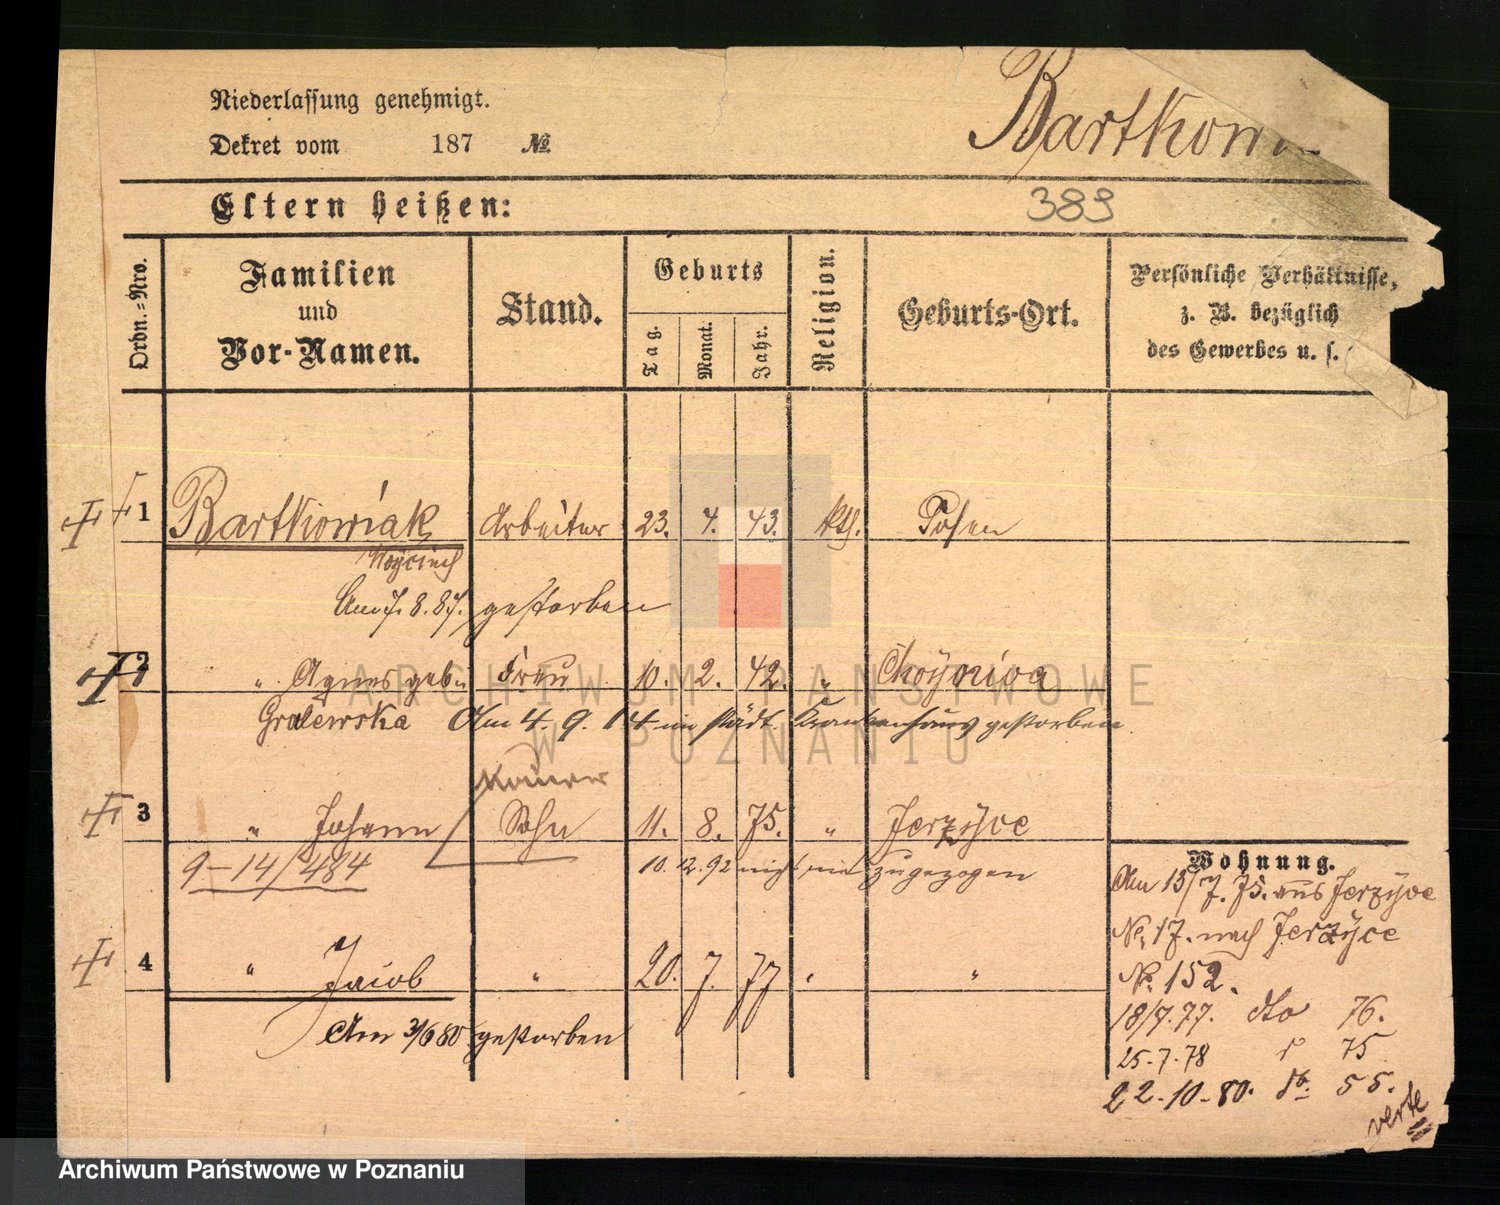 Niederlassung genehmigt.
Dekret vom 187 №
Bartkowi
Eltern heißen:
389
Ordn.-Nro.
Familien und Vor-Namen.
Stand.
Geburts
Tag.
Monat.
Jahr.
Religion.
Geburts-Ort.
Persönliche Verhältnisse,
z. B. bezüglich
des Gewerbes u. s.
1 Bartkowiak Arbeiter 23. 4. 43. kth. Posen
Woyciech
Am 7. 8. 87. gestorben
2 " Agnes geb. Frau 10. 2. 42. "
Gralewska Am 4. 9. 14 im städt. Krankenhaus gestorben.
3 " Johann Sohn 11. 8. 75. " Jerzyce
9-14/484 10. 12. 92 nicht mit zugezogen
4 " Jacob " 20. 7. 77 " "
Am 3/6 80 gestorben
Wohnung.
Am 13/7. 75. aus Jerzyce
No. 17. nach Jerzyce
No. 152.
18/7. 77. dto 76.
25-7-78 75
22-10-80. do. 55.
verte
ARCHIWUM PAŃSTWOWE
W POZNANIU
Archiwum Państwowe w Poznaniu